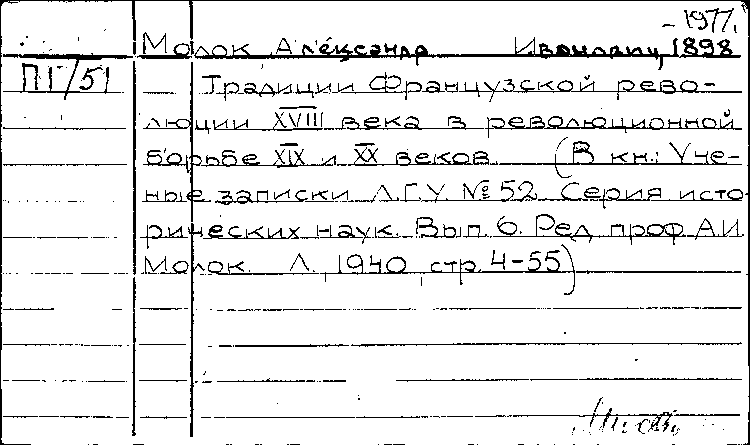 – 1977.
Молок Александр Иванович, 1898
ПГ/51 — Традиции Французской рево-
люции XVIII века в революционной
борьбе XIX и XX веков. (В кн.: Уче-
ные записки Л.Г.У № 52. Серия исто-
рических наук. Вып. 6. Ред. проф. А.И.
Молок. Л., 1940, стр. 4-55)